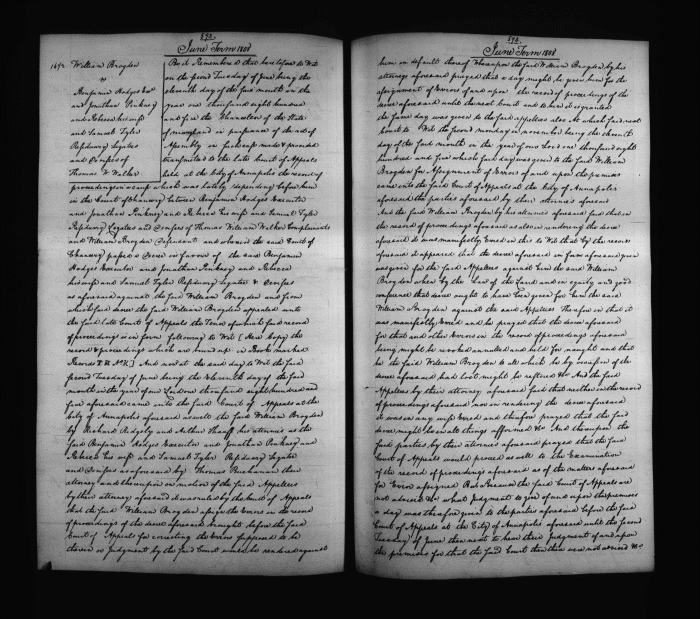 592.
June Term 1808
1692 William Brogden
vs
Benjamin Hodges Exr
and Jonathan Pinkney
and Rebecca his wife
and Samuel Tyler
Residuary Legatees
and Devisees of
Thomas W Walker
Be it Remembered that heretofore to Wit
on the first Tuesday of June being the
eleventh day of the said month in the
year one thousand eight hundred
and five the Chancellor of the State
of Maryland in pursuance of the act of
Assembly in such case made & provided
transmitted to the late Court of Appeals
held at the City of Annapolis the record of
proceedings in a case which was lately depending before him
in the Court of Chancery between Benjamin Hodges Executor
and Jonathan Pinkney and Rebecca his wife and Samuel Tyler
Residuary Legatees and Devisees of Thomas William Walker Complainants
and William Brogden Defendant and wherein the said Court of
Chancery passed a Decree in favour of the said Benjamin
Hodges Executor and Jonathan Pinkney and Rebecca
his wife and Samuel Tyler Residuary Legatees & Devisees
as aforesaid against the said William Brogden and from
which said decree the said William Brogden appealed unto
the said late Court of Appeals the Tenor of which said record
of proceedings is in form following to Wit (Here Copy the
record & proceedings which are bound up in Book marked
Records
And now at this said day to Wit the said
first Tuesday of June being the eleventh day of the said
month in the year of our Lord one thousand eight hundred and
five aforesaid came into the said Court of Appeals at the
City of Annapolis aforesaid as well the said William Brogden
by Richard Ridgely and Arthur Shaaff his attornies as the
said Benjamin Hodges Executor and Jonathan Pinkney and
Rebecca his wife and Samuel Tyler Residuary Legatees
and Devisees as aforesaid by Thomas Buchanan their
attorney and thereupon on motion of the said Appellees
by their attorney aforesaid it was ruled by the Court of Appeals
that the said William Brogden assign the Errors in the record
of proceedings of the decree aforesaid brought before the said
Court of Appeals for correcting the Errors supposed to be
therein or Judgment by the said Court would be rendered against
593.
June Term 1808
him on default thereof Whereupon the said William Brogden by his
attornies aforesaid prayed that a day might be given him for the
assignment of Errors of and upon the record of proceedings of the
decree aforesaid until the next Court and to him it is granted
the same day was given to the said Appellees also At which said next
Court to Wit the second monday in november being the eleventh
day of the said month in the year of our Lord one thousand eight
hundred and five which said day was given to the said William
Brogden for Assignment of Errors of and upon the premises
came into the said Court of Appeals at the City of Annapolis
aforesaid the parties aforesaid by their attornies aforesaid
And the said William Brogden by his attornies aforesaid said that in
the record of proceedings aforesaid as also in rendering the decree
aforesaid it was manifestly Erred in this to Wit that by the record
aforesaid it appeared that the decree aforesaid in form aforesaid given
was given for the said Appellees against him the said William
Brogden when by the Law of the Land and in equity and good
conscience that decree ought to have been given for him the said
William Brogden against the said Appellees Therefore in that it
was manifestly Erred and he prayed that the decree aforesaid
for that and other Errors in the record of proceedings aforesaid
being might be revoked annulled and held for naught and that
he the said William Brogden to all which he by occasion of the
decree aforesaid had lost might be restored &c And the said
Appellees by their attorney aforesaid said that neither in the record
of proceedings aforesaid nor in rendering the decree aforesaid
it was in any wise Erred and therefore prayed that the said
decree might be in all things affirmed &c And thereupon the
said parties by their attornies aforesaid prayed that the said
Court of Appeals would proceed as well to the Examination
of the record of proceedings aforesaid as of the matters aforesaid
for Error assigned But Because the said Court of Appeals are
not advised &c what Judgment to give of and upon the premises
a day was therefore given to the parties aforesaid before the said
Court of Appeals at the City of Annapolis aforesaid until the second
Tuesday of June then next to hear their Judgment of and upon
the premises for that the said Court then there were not advised &c